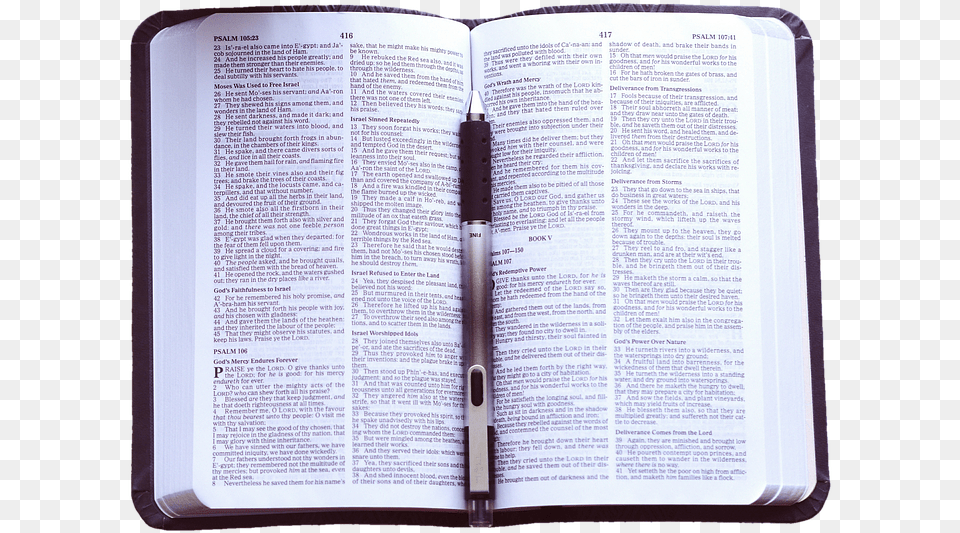 PSALM 105:23
416
23 Is'-ra-el also came into E'-gypt; and Ja'-
cob sojourned in the land of Ham.
24 And he increased his people greatly; and
made them stronger than their enemies.
25 He turned their heart to hate his people, to
deal subtilly with his servants.
Moses Was Used to Free Israel
26 He sent Mo'-ses his servant; and Aa'-ron
whom he had chosen.
27 They shewed his signs among them, and
wonders in the land of Ham.
28 He sent darkness, and made it dark; and
they rebelled not against his word.
29 He turned their waters into blood, and
slew their fish.
30 Their land brought forth frogs in abun-
dance, in the chambers of their kings.
31 He spake, and there came divers sorts of
flies, and lice in all their coasts.
32 He gave them hail for rain, and flaming fire
in their land.
33 He smote their vines also and their fig
trees; and brake the trees of their coasts.
34 He spake, and the locusts came, and ca-
terpillers, and that without number,
35 And did eat up all the herbs in their land,
and devoured the fruit of their ground.
36 He smote also all the firstborn in their
land, the chief of all their strength.
37 He brought them forth also with silver and
gold: and there was not one feeble person
among their tribes.
38 E'-gypt was glad when they departed: for
the fear of them fell upon them.
39 He spread a cloud for a covering; and fire
to give light in the night.
40 The people asked, and he brought quails,
and satisfied them with the bread of heaven.
41 He opened the rock, and the waters gushed
out; they ran in the dry places like a river.
God's Faithfulness to Israel
42 For he remembered his holy promise, and
A'-bra-ham his servant.
43 And he brought forth his people with joy,
and his chosen with gladness:
44 And gave them the lands of the heathen:
and they inherited the labour of the people;
45 That they might observe his statutes, and
keep his laws. Praise ye the LORD.
PSALM 106
God's Mercy Endures Forever
PRAISE ye the LORD. O give thanks unto
the LORD; for he is good: for his mercy
endureth for ever.
2 Who can utter the mighty acts of the
LORD? who can shew forth all his praise?
3 Blessed are they that keep judgment, and
he that doeth righteousness at all times.
4 Remember me, O LORD, with the favour
that thou bearest unto thy people: O visit me
with thy salvation;
5 That I may see the good of thy chosen, that
I may rejoice in the gladness of thy nation, that
I may glory with thine inheritance.
6 We have sinned with our fathers, we have
committed iniquity, we have done wickedly.
7 Our fathers understood not thy wonders in
E'-gypt; they remembered not the multitude of
thy mercies; but provoked him at the sea, even
at the Red sea.
8 Nevertheless he saved them for his name's
sake, that he might make his mighty power to
be known.
9 He rebuked the Red sea also, and it was
dried up: so he led them through the depths, as
through the wilderness.
10 And he saved them from the hand of him
that hated them, and redeemed them from the
hand of the enemy.
11 And the waters covered their enemies:
there was not one of them left.
12 Then believed they his words; they sang
his praise.
Israel Sinned Repeatedly
13 They soon forgat his works; they
not for his counsel:
14 But lusted exceedingly in the wilderness,
and tempted God in the desert.
15 And he gave them their request; but sent
leanness into their soul.
16 They envied Mo'-ses also in the camp,
Aa'-ron the saint of the LORD.
17 The earth opened and swallowed up
than and covered the company of
18 And a fire was kindled in their company;
the flame burned up the wicked.
19 They made a calf in Ho'-reb, and
shipped the molten image.
20 Thus they changed their glory into the
militude of an ox that eateth grass.
21 They forgat God their saviour, which had
done great things in E'-gypt;
22 Wondrous works in the land of Ham, and
terrible things by the Red sea.
23 Therefore he said that he would destroy
them, had not Mo'-ses his chosen stood before
him in the breach, to turn away his wrath,
he should destroy them.
Israel Refused to Enter the Land
24 Yea, they despised the pleasant land,
believed not his word:
25 But murmured in their tents, and
ened not unto the voice of the LORD.
26 Therefore he lifted up his hand against
them, to overthrow them in the wilderness:
27 To overthrow their seed also among the
tions, and to scatter them in the lands.
Israel Worshipped Idols
28 They joined themselves also unto
pe'-or, and ate the sacrifices of the dead.
29 Thus they provoked him to anger with
their inventions: and the plague brake
them.
30 Then stood up Phin'-e-has, and
judgment: and so the plague was stayed.
31 And that was counted unto him for
teousness unto all generations for evermore.
32 They angered him also at the waters of
strife, so that it went ill with Mo'-ses for
sakes:
33 Because they provoked his spirit, so that
he spake unadvisedly with his lips.
34 They did not destroy the nations, concern-
ing whom the LORD commanded them:
35 But were mingled among the heathen,
learned their works.
36 And they served their idols: which were
snare unto them.
37 Yea, they sacrificed their sons and
daughters unto devils,
38 And shed innocent blood, even the blood
of their sons and of their daughters, whom
417
PSALM 107:41
they sacrificed unto the idols of Ca'-na-an: and
the land was polluted with blood.
39 Thus were they defiled with their own
works, and went a whoring with their own in-
ventions.
God's Wrath and Mercy
Therefore was the wrath of the LORD kin-
dled against his people, insomuch that he ab-
horred his own inheritance.
And he gave them into the hand of the hea-
and they that hated them ruled over
Their enemies also oppressed them, and
were brought into subjection under their
Many times did he deliver them; but they
him with their counsel, and were
low for their iniquity.
Nevertheless he regarded their affliction,
he heard their cry:
And he remembered for them his cov-
and repented according to the multitude
his mercies.
He made them also to be pitied of all those
carried them captives.
Save us, O LORD our God, and gather us
among the heathen, to give thanks unto
holy name, and to triumph in thy praise.
Blessed be the LORD God of Is'-ra-el from
everlasting to everlasting: and let all the people
Amen. Praise ye the LORD.
BOOK V
Psalms 107—150
PSALM 107
God's Redemptive Power
GIVE thanks unto the LORD, for he is
good: for his mercy endureth for ever.
Let the redeemed of the LORD say so,
he hath redeemed from the hand of the
And gathered them out of the lands, from
and from the west, from the north, and
the south.
They wandered in the wilderness in a soli-
way; they found no city to dwell in.
Hungry and thirsty, their soul fainted in
Then they cried unto the LORD in their
and he delivered them out of their dis-
And he led them forth by the right way,
they might go to a city of habitation.
Oh that men would praise the LORD for his
goodness, and for his wonderful works to the
children of men!
For he satisfieth the longing soul, and fill-
the hungry soul with goodness.
Such as sit in darkness and in the shadow
death, being bound in affliction and iron;
Because they rebelled against the words of
and contemned the counsel of the most
Therefore he brought down their heart
labour; they fell down, and there was
Then they cried unto the LORD in their
and he saved them out of their dis-
He brought them out of darkness and the
shadow of death, and brake their bands in
sunder.
15 Oh that men would praise the LORD for his
goodness, and for his wonderful works to the
children of men!
16 For he hath broken the gates of brass, and
cut the bars of iron in sunder.
Deliverance from Transgressions
17 Fools because of their transgression, and
because of their iniquities, are afflicted.
18 Their soul abhorreth all manner of meat;
and they draw near unto the gates of death.
19 Then they cry unto the LORD in their trou-
ble, and he saveth them out of their distresses.
20 He sent his word, and healed them, and de-
livered them from their destructions.
21 Oh that men would praise the LORD for his
goodness, and for his wonderful works to the
children of men!
22 And let them sacrifice the sacrifices of
thanksgiving, and declare his works with re-
joicing.
Deliverance from Storms
23 They that go down to the sea in ships, that
do business in great waters;
24 These see the works of the LORD, and his
wonders in the deep.
25 For he commandeth, and raiseth the
stormy wind, which lifteth up the waves
thereof.
26 They mount up to the heaven, they go
down again to the depths: their soul is melted
because of trouble.
27 They reel to and fro, and stagger like a
drunken man, and are at their wit's end.
28 Then they cry unto the LORD in their trou-
ble, and he bringeth them out of their dis-
tresses.
29 He maketh the storm a calm, so that the
waves thereof are still.
30 Then are they glad because they be quiet;
so he bringeth them unto their desired haven.
31 Oh that men would praise the LORD for his
goodness, and for his wonderful works to the
children of men!
32 Let them exalt him also in the congrega-
tion of the people, and praise him in the assem-
bly of the elders.
God's Power Over Nature
33 He turneth rivers into a wilderness, and
the watersprings into dry ground;
34 A fruitful land into barrenness, for the
wickedness of them that dwell therein.
35 He turneth the wilderness into a standing
water, and dry ground into watersprings.
36 And there he maketh the hungry to dwell,
that they may prepare a city for habitation;
37 And sow the fields, and plant vineyards,
which may yield fruits of increase.
38 He blesseth them also, so that they are
multiplied greatly; and suffereth not their cat-
tle to decrease.
Deliverance Comes from the Lord
39 Again, they are minished and brought low
through oppression, affliction, and sorrow.
40 He poureth contempt upon princes, and
causeth them to wander in the wilderness,
where there is no way.
41 Yet setteth he the poor on high from afflic-
tion, and maketh him families like a flock.